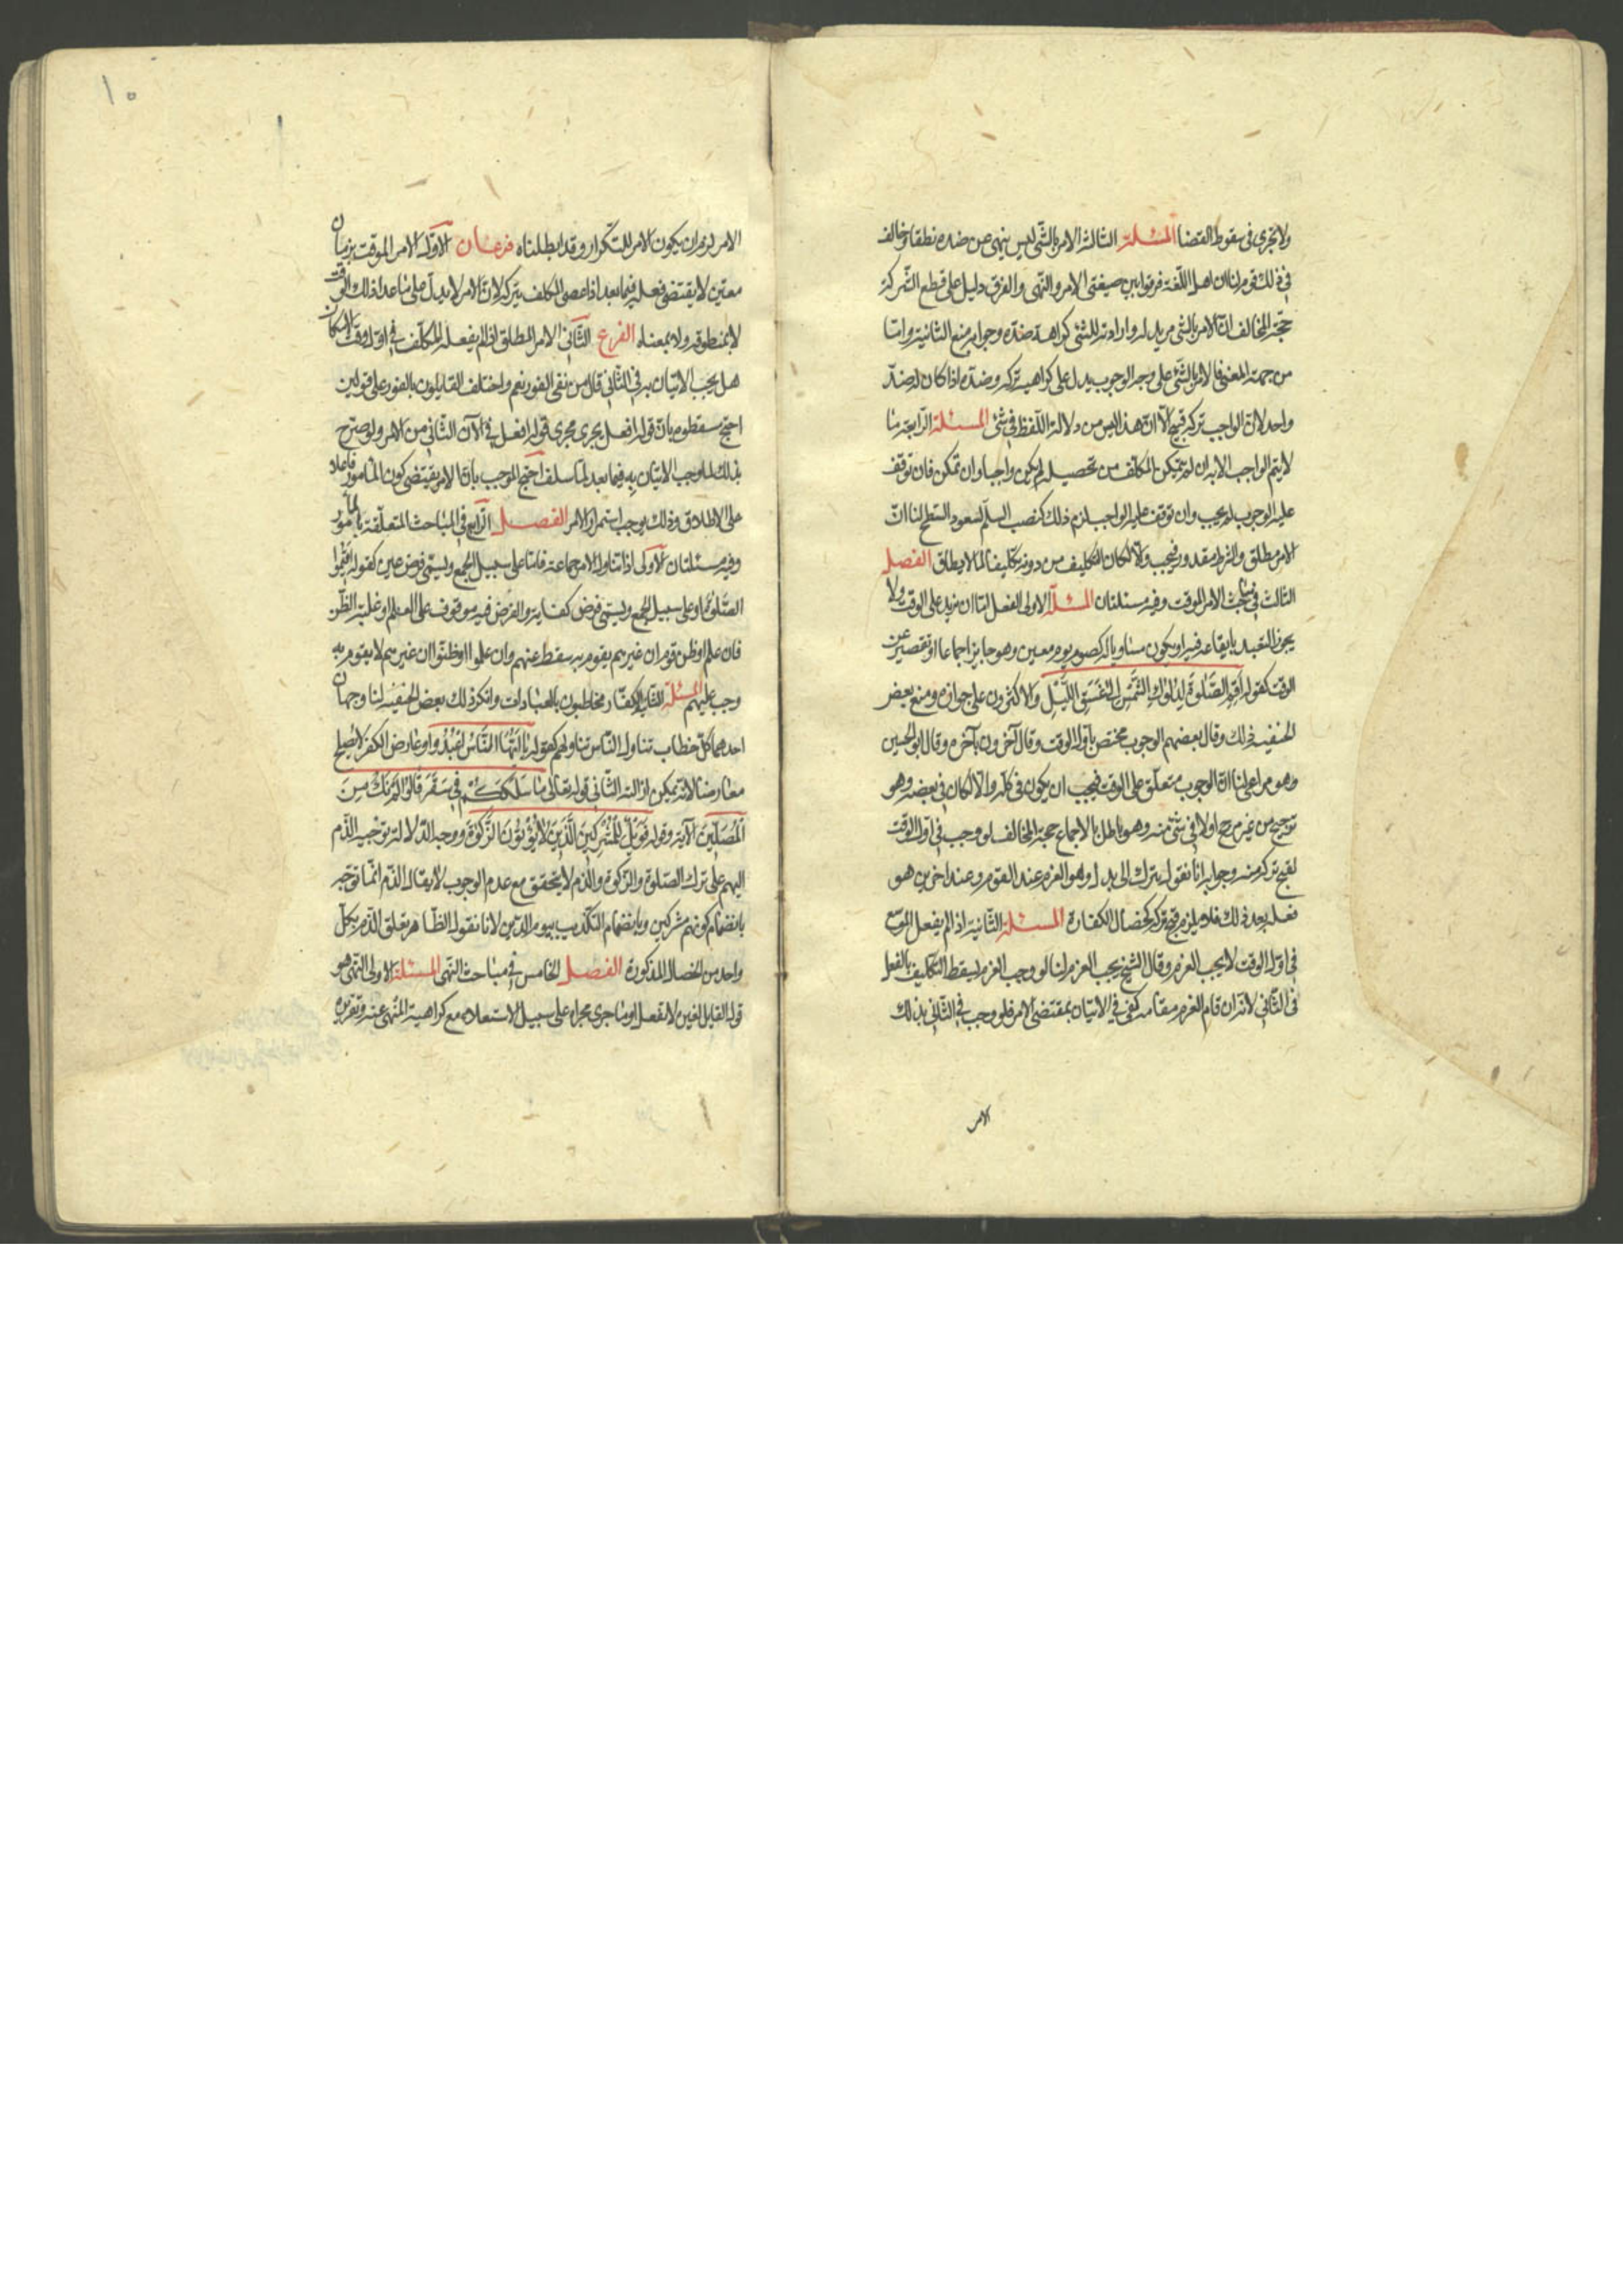 ولا تجزى فى سقوط القضا المسئلة الثالثة الامر بالشئ ليس بنهى عن ضده نطقا وخالف
فى ذلك قوم لنا ان اهل اللغة فرقوا بين صيغتى الامر والنهى والفرق دليل على قطع الشركة
حجة المخالف ان الامر بالشئ مريد له وارادته للشئ كراهة ضده وجوابه منع الثانية واما
من جهة المعنى فالامر بالشئ على وجه الوجوب يدل على كراهية تركه وضده اذا كان له ضد
واحد لان الواجب تركه قبيح الا ان هذا ليس من دلالة اللفظ فى شئ المسئلة الرابعة ما
لايتم الواجب الا به ان لم يتمكن المكلف من تحصيله لم يكن واجبا وان تمكن فان توقف
عليه الوجوب لم يجب وان توقف عليه الواجب لزم ذلك كنصب السلم لصعود السطح لنا ان
الامر مطلق والشرط مقدور فيجب والا لكان التكليف من دونه تكليفا لما لايطاق الفصل
الثالث فى مباحث الامر الموقت وفيه مسئلتان المسئلة الاولى الفعل اما ان يزيد على الوقت ولا
يجوز التعبد بايقاعه فيه او يكون مساويا له كصوم يوم معين وهو جايز اجماعا او تقصير عن
الوقت كقوله اقم الصلوة لدلوك الشمس الى غسق الليل والاكثرون على جوازه ومنع بعض
الحنفية ذلك وقال بعضهم الوجوب مختص باول الوقت وقال آخرون بآخره وقال ابو الحسين
وهو مراعى لنا ان الوجوب متعلق على الوقت فيجب ان يكون فى كله والا لكان فى بعضه وهو
ترجيح من غير مرجح اولا فى شئ منه وهو باطل بالاجماع حجة المخالف لو وجب فى اول الوقت
لقبح تركه منه وجوابه انا نقول بترك الى بدل وهو العزم عند القوم وعند اخرين هو
فعله بعد ذلك فلا يلزم قبح تركه كخصال الكفارة المسئلة الثانية اذا لم يفعل الموسع
فى اول الوقت لايجب العزم وقال الشيخ يجب العزم لنا لو وجب العزم لسقط التكليف بالفعل
فى الثانى لانه ان قام العزم مقامه كفى فى الاتيان بمقتضى الامر فلو وجب فى الثانى بذلك
الامر
١٥
الامر لزم ان يكون الامر للتكرار وقد ابطلناه فرعان الاول الامر الموقت بزمان
معين لايقتضى فعله فيما بعد اذا عصى المكلف بتركه لان الامر لايدل على ماعدا ذلك الوقت
لابمنطوقه ولا بمعناه الفرع الثانى الامر المطلق اذا لم يفعله المكلف فى اول اوقات الامكان
هل يجب الاتيان به فى الثانى قال من نفى الفور نعم واختلف القايلون بالفور على قولين
احتج مسقطوه بان قوله افعل يجرى مجرى قوله افعل فى الآن الثانى من الامر ولو صرح
بذلك لما وجب الاتيان به فيما بعد لما سلف احتج الموجب بان الامر يقتضى كون المامور فاعلا
على الاطلاق وذلك يوجب استمرار الامر الفصل الرابع فى المباحث المتعلقة بالمامور
وفيه مسئلتان الاولى اذا تناول الامر جماعة فاما على سبيل الجمع ويسمى فرض عين كقوله اقيموا
الصلوة او على سبيل الجمع ويسمى فرض كفاية والفرض فيه موقوف على العلم او غلبة الظن
فان علم او ظن قوم ان غيرهم يقوم به سقط عنهم وان علموا او ظنوا ان غيرهم لا يقوم به
وجب عليهم المسئلة الثانية الكفار مخاطبون بالعبادات وانكر ذلك بعض الحنفية لنا وجهان
احدهما كل خطاب تناول الناس تناولهم كقوله يا ايها الناس اعبدوا وعارض الكفر لايصلح
معارضا لانه يمكن ازالته الثانى قوله تعالى ما سلككم فى سقر قالوا لم نك من
المصلين الآية وقوله فويل للمشركين الذين لايؤتون الزكوة ووجه الدلالة توجيه الذم
اليهم على ترك الصلوة والزكوة والذم لايتحقق مع عدم الوجوب لايقال الذم انما توجه
بانضمام كونهم مشركين وبانضمام التكذيب بيوم الدين لانا نقول الظاهر تعلق الذم بكل
واحد من الخصال المذكورة الفصل الخامس فى مباحث النهى المسئلة الاولى النهى هو
قول القايل لغيره لاتفعل او ما جرى مجراه على سبيل الاستعلاء مع كراهية المنهى عنه وتقريره